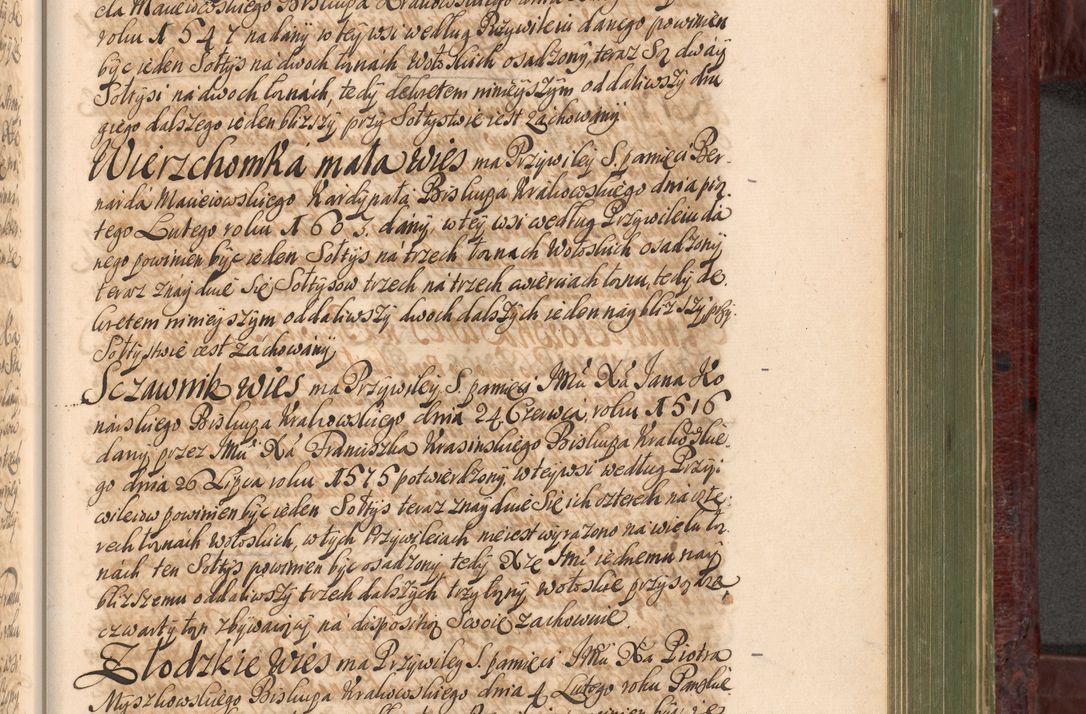 cla Macieiowskiego Biskupa Krakowskiego
roku 1547 nadany wtey wsi według Przywileiu danego powinien
być ieden Sołtys na dwoch łanach Wołoskich osadzony, teraz Są dwáy
Sołtysi na dwoch łanách, tedy dekretem ninieyszym oddaliwszy dru
giego dalszego ieden bliższy przy Sołtystwie iest zachowany
Wierzchomka mała wies ma Przywiley S. pamięci Ber-
narda Macieiowskiego Kardynała Biskupa Krakowskiego dnia pią
tego Lutego roku 1603. dány, wtey wsi według Przywileiu dá
nego powinien być ieden Sołtys ná trzech łanach Wołoskich osadzony
teraz znayduie się Sołtysow trzech na trzech cwierciach łanu, tedy de
kretem ninieyszym oddaliwszy dwoch dalszych ieden naybliższy, przy
Sołtystwie iest zachowány,
Sczawnik wies ma Przywiley S. pamięci Jmći Xá Jana Ko
narskiego Biskupa Krakowskiego dnia 24 Czerwca roku 1516
dany przez Jmći Xá Franciszka Krasinskiego Biskupa Krakowskie
go dnia 26 Lipca roku 1575 potwierdzony wteywsi według Przyi
wileiow powinien być ieden Sołtys teraz znayduie Się ich czterech na czte
rech łanach Wołoskich, wtych Przywileiach nieiest wyrażono na wielu ła
nách ten Sołtys powinien być osadzony tedy Xże Jmć iednemu nay
bliższemu oddaliwszy trzech dalszych trzy łany Wołoskie przysądza,
czwarty łan zbywaiący na disposytią Swoię zachowuie.
Złodzkie wies ma Przywiley S. pamięci Jmći Xá Piotra
Myszkowskiego Biskupa Krakowskiego dnia 4 Lutego roku Pańskie